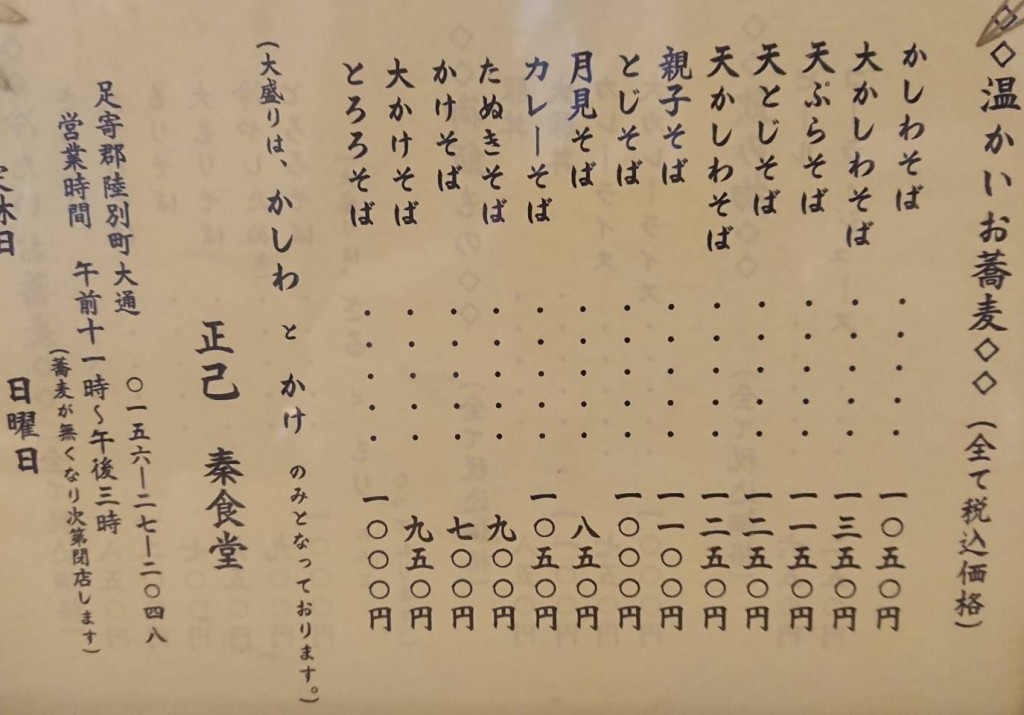 ◇◇温かいお蕎麦◇◇（全て税込価格）
かしわそば・・・・・一〇五〇円
大かしわそば・・・・・一三五〇円
天ぷらそば・・・・・一一五〇円
天とじそば・・・・・一二五〇円
天かしわそば・・・・・一二五〇円
親子そば・・・・・一一〇〇円
とじそば・・・・・一〇〇〇円
月見そば・・・・・八五〇円
カレーそば・・・・・一〇五〇円
たぬきそば・・・・・九〇〇円
かけそば・・・・・七〇〇円
大かけそば・・・・・九五〇円
とろろそば・・・・・一〇〇〇円
（大盛りは、かしわ と かけ のみとなっております。）
正己 秦食堂
足寄郡陸別町大通 〇一五六ー二七ー二〇四八
営業時間 午前十一時〜午後三時
（蕎麦が無くなり次第閉店します）
定休日 日曜日